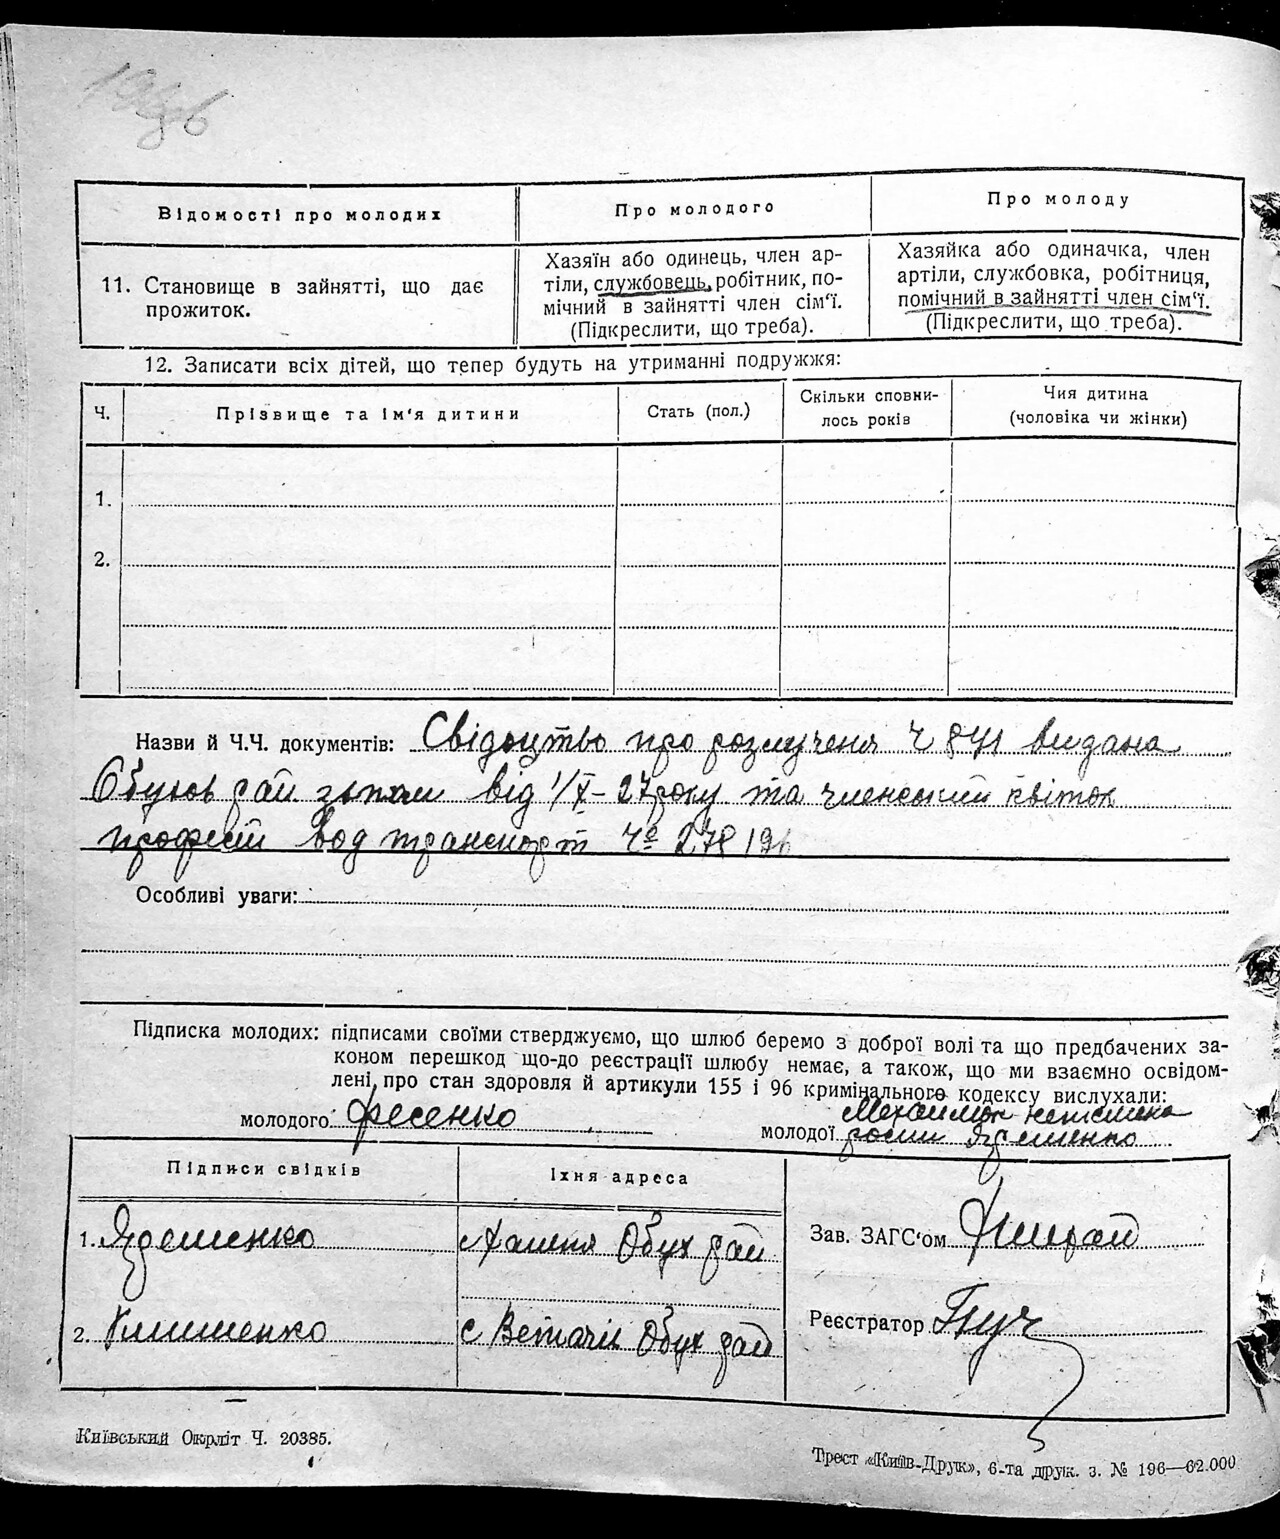 Відомості про молодих
Про молодого
Про молоду
11. Становище в зайнятті, що дає
прожиток.
Хазяїн або одинець, член ар-
тіли, службовець, робітник, по-
мічний в зайнятті член сім'ї.
(Підкреслити, що треба).
Хазяйка або одиначка, член
артіли, службовка, робітниця,
помічний в зайнятті член сім'ї.
(Підкреслити, що треба).
12. Записати всіх дітей, що тепер будуть на утриманні подружжя:
Ч.
Прізвище та ім'я дитини
Стать (пол.)
Скільки сповни-
лось років
Чия дитина
(чоловіка чи жінки)
1.
2.
Назви й Ч.Ч. документів: Свідоцтво про розлученя Ч видана
Обухов рай від 1/X-27 року та членський квіток
вод транспорт Чо 278196
Особливі уваги:
Підписка молодих: підписами своїми стверджуємо, що шлюб беремо з доброї волі та що предбачених за-
коном перешкод що-до реєстрації шлюбу немає, а також, що ми взаємно освідом-
лені про стан здоровля й артикули 155 і 96 кримінального кодексу вислухали:
молодого: Фесенко
молодої
Підписи свідків
Їхня адреса
1.
Обух рай
Зав. ЗАГС'ом
2. Клименко
с Витачів Обух рай
Реєстратор
Київський Окрліт Ч. 20385.
Трест «Київ-Друк», 6-та друк. з. № 196—62.000